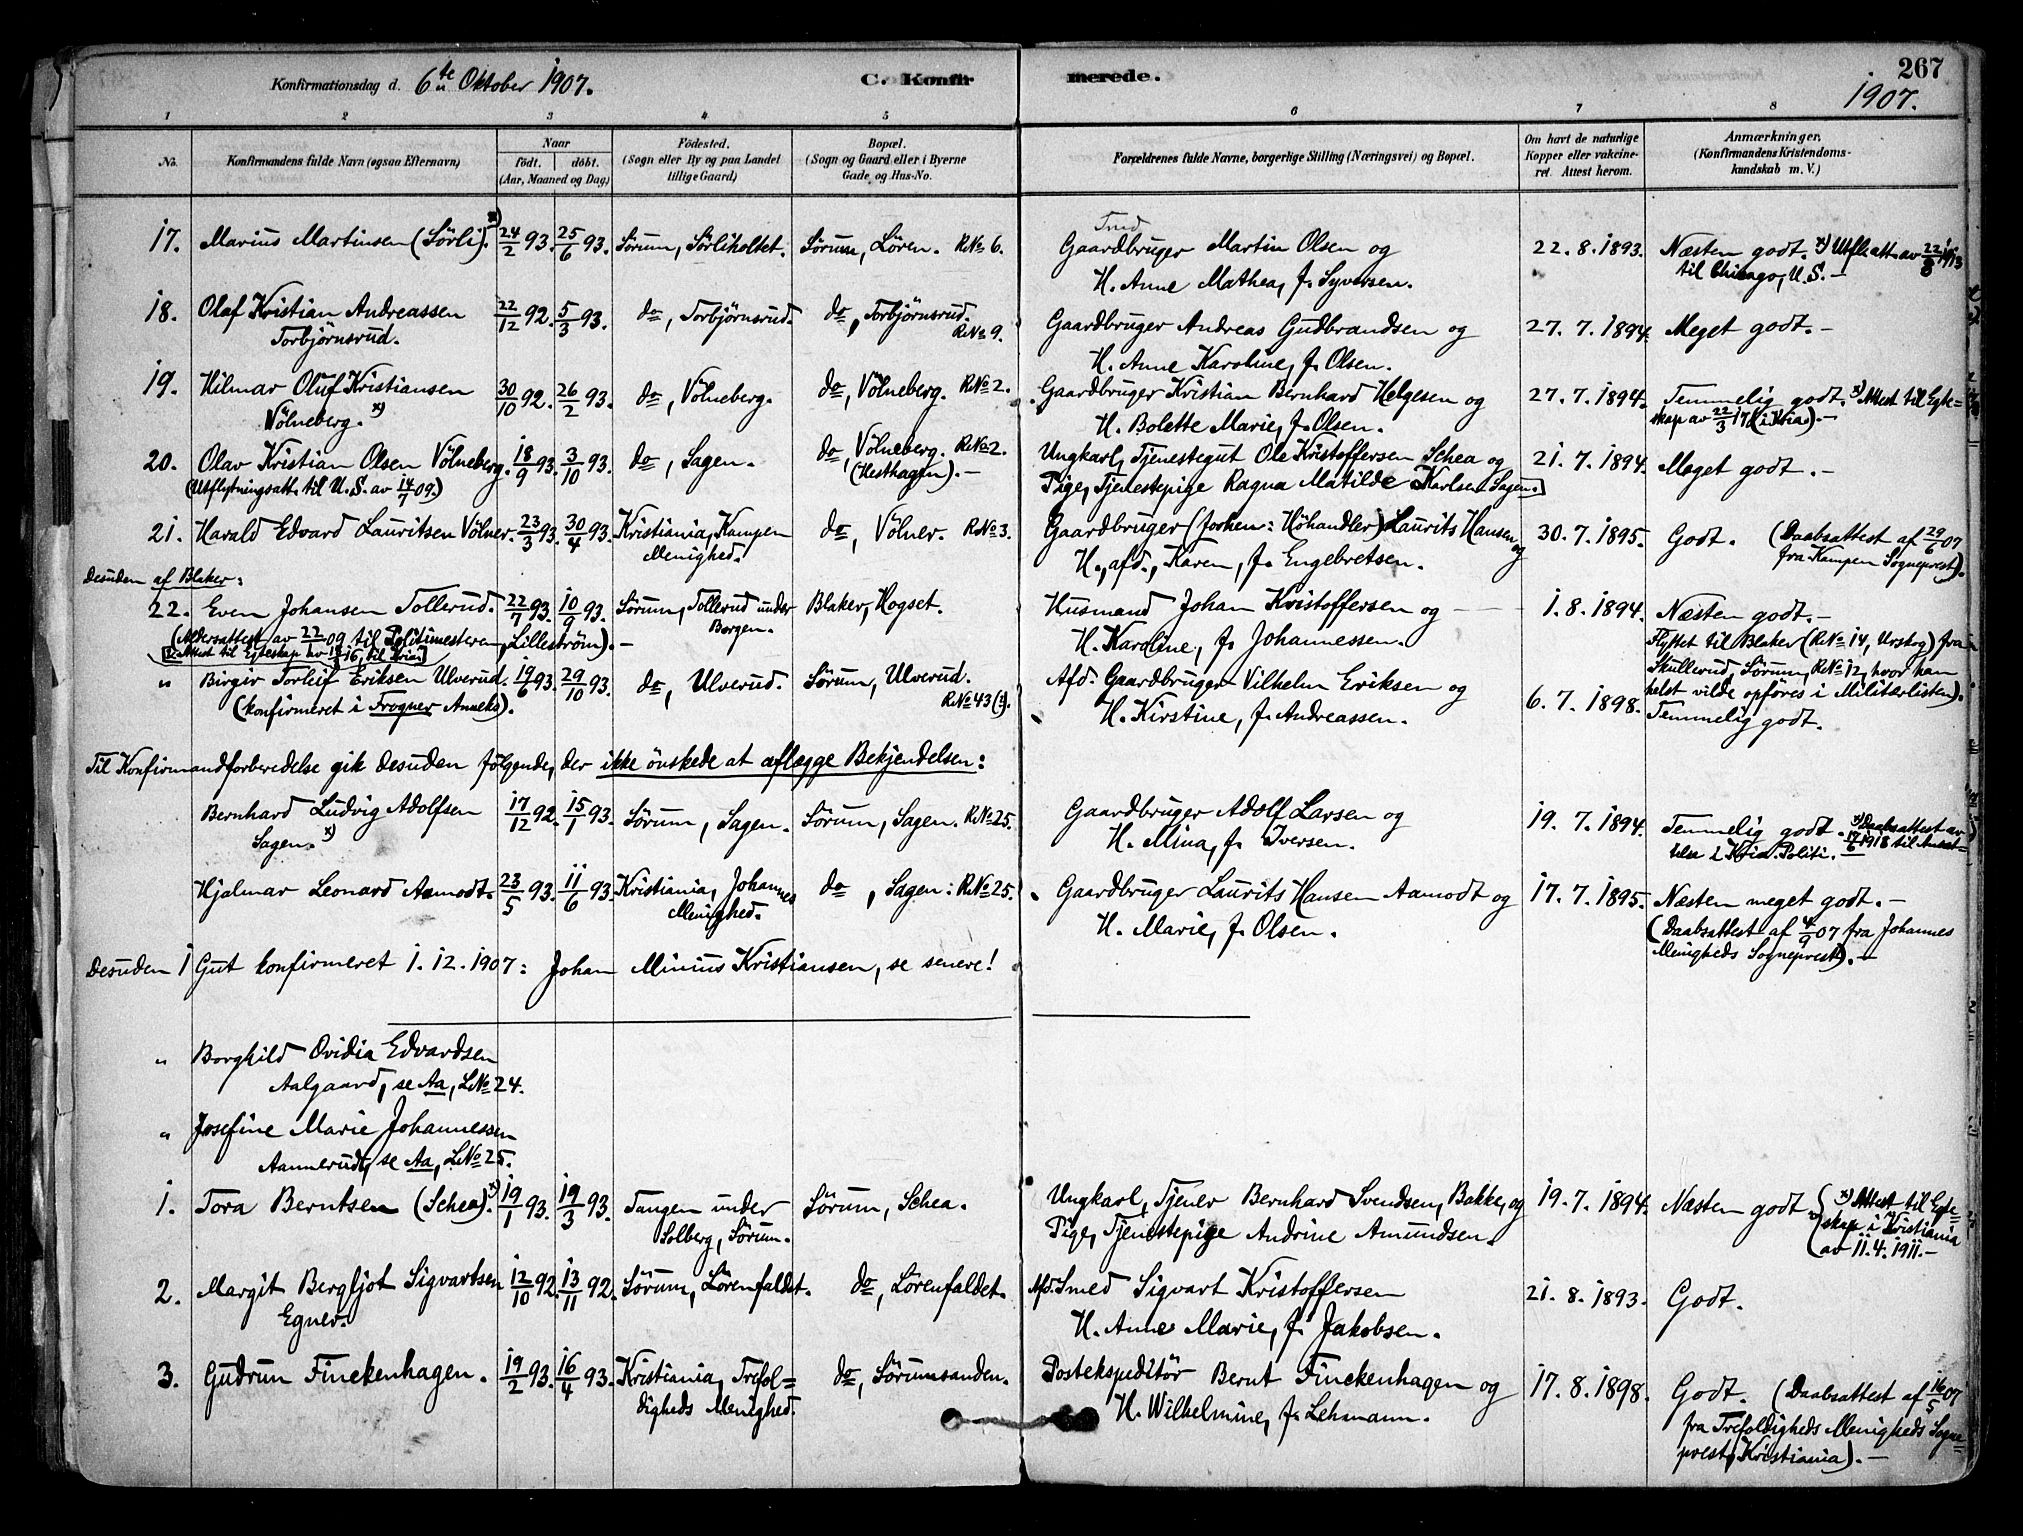 267
Konfirmationsdag d. 6te Oktober 1907.
C. Konfirmerede.
1907.
1 2 3 4 5 6 7 8
No.
Konfirmandens fulde Navn (ogsaa Efternavn)
Naar
födt. döbt.
(Aar, Maaned og Dag)
Födested.
(Sogn eller By og paa Landet
tillige Gaard)
Bopæl.
(Sogn og Gaard eller i Byerne
Gade og Hus-No.
Forældrenes fulde Navne, borgerlige Stilling (Næringsvei) og Bopæl.
Om havt de naturlige
Kopper eller vakcine-
ret. Attest herom.
Anmærkninger.
(Konfirmandens Kristendoms-
kundskab m. V.)
17. Marius Martinsen (Sörli). x) 24/2 93. 25/6 93. Sörum, Sörliholtet. Sörum, Lören. R.No 6. Gaardbruger Martin Olsen og 22.8.1893. Næsten godt. x) Utfl.att. av 22/3 1913
H. Anne Mathea, f. Syversen. til Chicago, U.S. —
18. Olaf Kristian Andreassen 22/12 92. 5/3 93. do, Torbjörnsrud. do, Torbjörnsrud. Gaardbruger Andreas Gudbrandsen og 27.7.1894. Meget godt. —
Torbjörnsrud. R.No 9. H. Anne Karoline, f. Olsen.
19. Hilmar Oluf Kristiansen 30/10 92. 26/2 93. do, Völneberg. do, Völneberg. R.No 2. Gaardbruger Kristian Bernhard Helgesen og 27.7.1894. Temmelig godt. x) Attest til Egte=
Völneberg. x) H. Bolette Marie, f. Olsen. skap av 22/3 17 (i Kria). —
20. Olav Kristian Olsen Völneberg. 18/9 93. 3/10 93. do, Sagen. do, Völneberg. R.No 2. Ungkarl, Tjenestegut Ole Kristoffersen Schea og 21.7.1894. Meget godt. —
(Utflytningsatt. til U.S. av 14/7 09.) (Hesthagen). — Pige, Tjenestepige Ragna Matilde Karlsen Sagen.
21. Harald Edvard Lauritsen Völner. 23/3 93. 30/4 93. Kristiania, Kampen do, Völner. R.No 3. Gaardbruger (forhen: Höhandler) Laurits Hansen og 30.7.1895. Godt. (Daabsattest af 29/6 07
Menighed. H., afd., Karen, f. Engebretsen. fra Kampen Sogneprest).
Desuden af Blaker:
22. Even Johansen Tollerud. 22/7 93. 10/9 93. Sörum, Tollerud under Blaker, Hogset. Husmand Johan Kristoffersen og 1.8.1894. Næsten godt. —
Borgen. H. Karoline, f. Johannessen.
(Aldersattest av 22/ 09 til Politimesteren, Lilleström). —
Attest til Egteskap av 16, til Kria Flyttet til Blaker (R.No 14, Urskog) fra
Skullerud, Sörum, R.No 12, hvor han
helst vilde opföres i Militærlisten).
" Birger Torleif Eriksen Ulverud. 19/6 93. 29/10 93. do, Ulverud. Sörum, Ulverud. Afd. Gaardbruger Vilhelm Eriksen og 6.7.1898. Temmelig godt.
(konfirmeret i Frogner Anneks). R.No 43 H. Kirstine, f. Andreassen.
Til Konfirmandforberedelse gik desuden fölgende, der ikke önskede at aflægge Bekjendelsen:
Bernhard Ludvig Adolfsen 17/12 92. 15/1 93. Sörum, Sagen. Sörum, Sagen. R.No 25. Gaardbruger Adolf Larsen og 19.7.1894. Temmelig godt. x) Daabsattest av
Sagen. x) H. Mina, f. Iversen. 17/6 1918 til Ansæt=
telse i Kria. Politi. —
Hjalmar Leonard Aamodt. 23/5 93. 11/6 93. Kristiania, Johannes do, Sagen: R.No 25. Gaardbruger Laurits Hansen Aamodt og 17.7.1895. Næsten meget godt. —
Menighed. H. Marie, f. Olsen. (Daabsattest af 4/9 07 fra Johannes
Menigheds Sogneprest). —
Desuden 1 Gut konfirmeret 1.12.1907: Johan Minius Kristiansen, se senere!
" Borghild Ovidia Edvardsen
Aalgaard, se Aa, L.No 24.
" Josefine Marie Johannessen
Aannerud, se Aa, L.No 25.
1. Tora Berntsen (Schea). x) 19/1 93. 19/3 93. Tangen under Sörum, Schea. Ungkarl, Tjener Bernhard Svendsen, Bakke, og 19.7.1894. Næsten godt. (x) Attest til Egte=
Solberg, Sörum. Pige, Tjenestepige Andrine Amundsen. skap i Kristiania
av 11.4.1911. —
2. Margit Bergljot Sigvartsen 12/10 92. 13/11 92. Sörum, Lörenfaldet. do, Lörenfaldet. Afd. Smed Sigvart Kristoffersen 21.8.1893. Godt.
Egner. H. Anne Marie, f. Jakobsen.
3. Gudrun Finckenhagen. 19/2 93. 16/4 93. Kristiania, Trefol= do, Sörumsanden. Postekspeditör Bernt Finckenhagen og 17.8.1898. Godt. (Daabsattest af 16/5 07
digheds Menighed. H. Wilhelmine, f. Lehmann. fra Trefoldigheds Menigheds Sogne=
prest, Kristiania). —